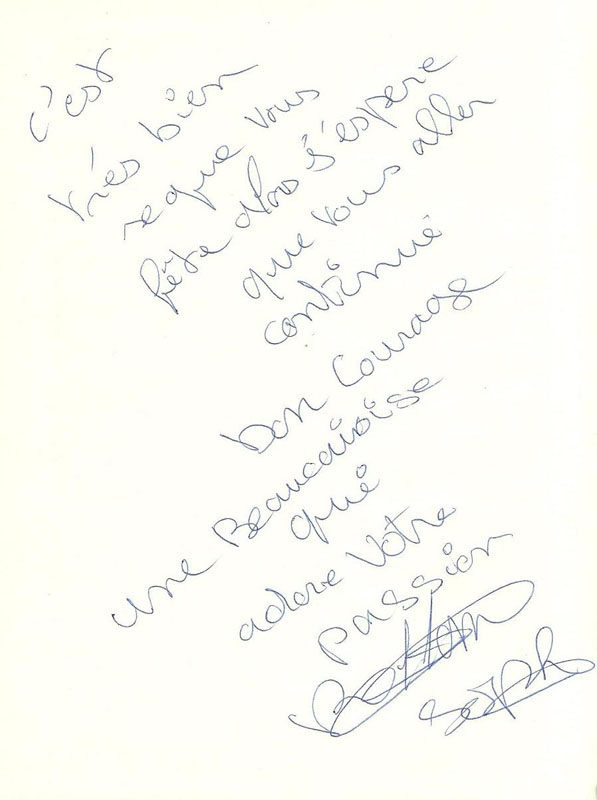 c'est
très bien
se que vous
fête alors j'espere
que vous aller
continué
bon Courage
une Beaucairoise
qui
adore Votre
passion